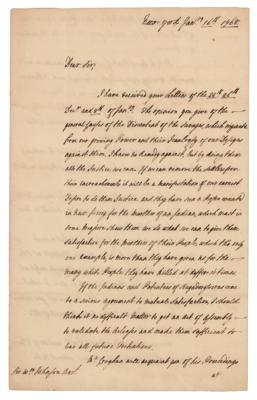 New York Jany. 16th 1768
Dear Sir,
I have received your Letters of the 26th
Decr. and 4th of Jany. The opinion you give of the
general Causes of the Discontent of the Savages, which
from our growing Power and their Jealousy of our Designs
against them, I have no Remedy against, but by doing them
all the Justice we can. If we can remove the Settlers from
their it will be a manifestation of our earnest
Desire to do them Justice and they have seen a
in now Jersey for the murther of an Indian, which must in
some Measure show them we do what we can to give them
Satisfaction for the murthers of their People, which tho' only
one example, is more than they have given us for the
many white People they have killed at different times.
If the Indians and of Pensylvania can
come to a serious agreement to mutual Satisfaction I should
think it no difficult matter to get an act of Assembly
to validate the and make them sufficient to
bar all future Pretentions.
Mr. Croghan will acquaint you of his Proceedings
Sir Wm. Johnson Bart.
at